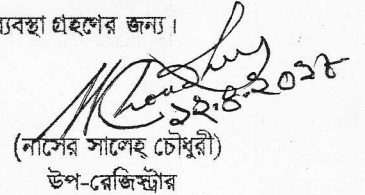 ব্যবস্থা গ্রহণের জন্য।
(নাসের সালেহ্ চৌধুরী)
উপ-রেজিস্ট্রার